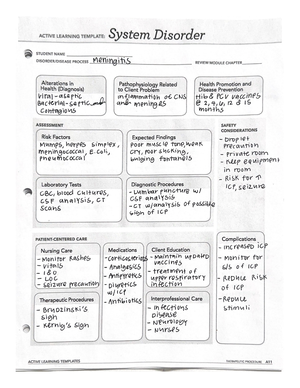 ACTIVE LEARNING TEMPLATE: System Disorder
STUDENT NAME
DISORDER/DISEASE PROCESS Meningitis REVIEW MODULE CHAPTER
Alterations in
Health (Diagnosis)
Viral-aseptic
Bacterial-septic and
contagious
Pathophysiology Related
to Client Problem
inflammation of CNS
and meninges
Health Promotion and
Disease Prevention
Hib & PCV vaccines
@ 2, 4, 6, 12 & 15
months
ASSESSMENT
SAFETY
CONSIDERATIONS
Risk Factors
Mumps, herpes simplex,
meningococcal, E.coli,
pneumococcal
Expected Findings
Poor muscle tone, weak
cry, poor sucking,
bulging fontanels
- Droplet
Precaution
- private room
- Keep equipment
in room
- Risk for ↑
ICP, seizure
Laboratory Tests
CBC, blood cultures,
CSF analysis, CT
scans
Diagnostic Procedures
- Lumbar puncture w/
CSF analysis
- CT w/analysis of possible
sign of ICP
PATIENT-CENTERED CARE
Nursing Care
- Monitor Rashes
- Vitals
- I & O
- LOC
- seizure precaution
Medications
- Corticosteriods
- Analgesics
- Antipyretics
- Diuretics
w/ICP
- Antibiotics
Client Education
- Maintain updated
vaccines
- treatment of
upper respiratory
infection
Complications
- increased ICP
- monitor for
S/S of ICP
- Reduce Risk
of ICP
- Reduce
Stimuli
Therapeutic Procedures
- Brudzinski's
sign
- Kernig's sign
Interprofessional Care
- Infectious
Disease
- Neurology
- Nurses
ACTIVE LEARNING TEMPLATES
THERAPEUTIC PROCEDURE A11